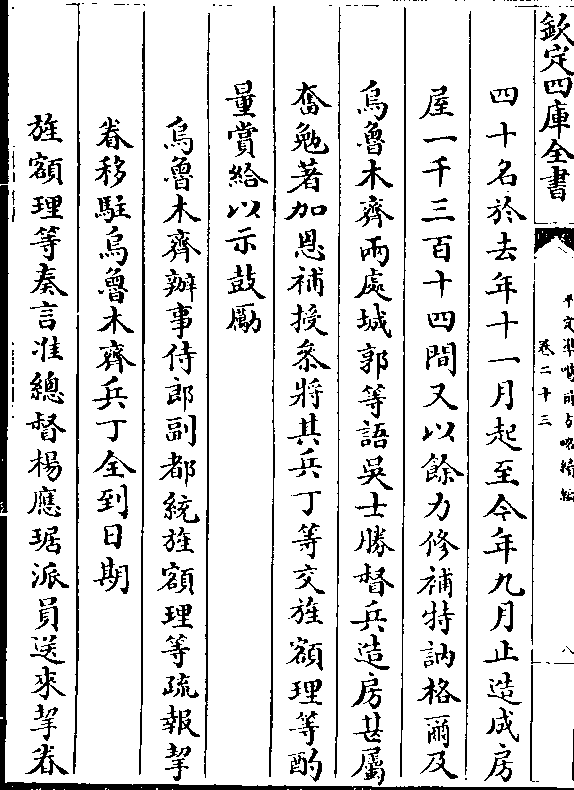 欽定四庫全書
平定準噶爾方略續編
卷二十三
八
四十名於去年十一月起至今年九月止造成房
屋一千三百十四間又以餘力修補特訥格爾及
烏魯木齊兩處城郭等語吳士勝督兵造房甚屬
奮勉著加恩補授叅將其兵丁等交旌額理等酌
量賞給以示鼓勵
烏魯木齊辦事侍郎副都統旌額理等疏報挈
眷移駐烏魯木齊兵丁全到日期
旌額理等奏言准總督楊應琚派員送來挈眷